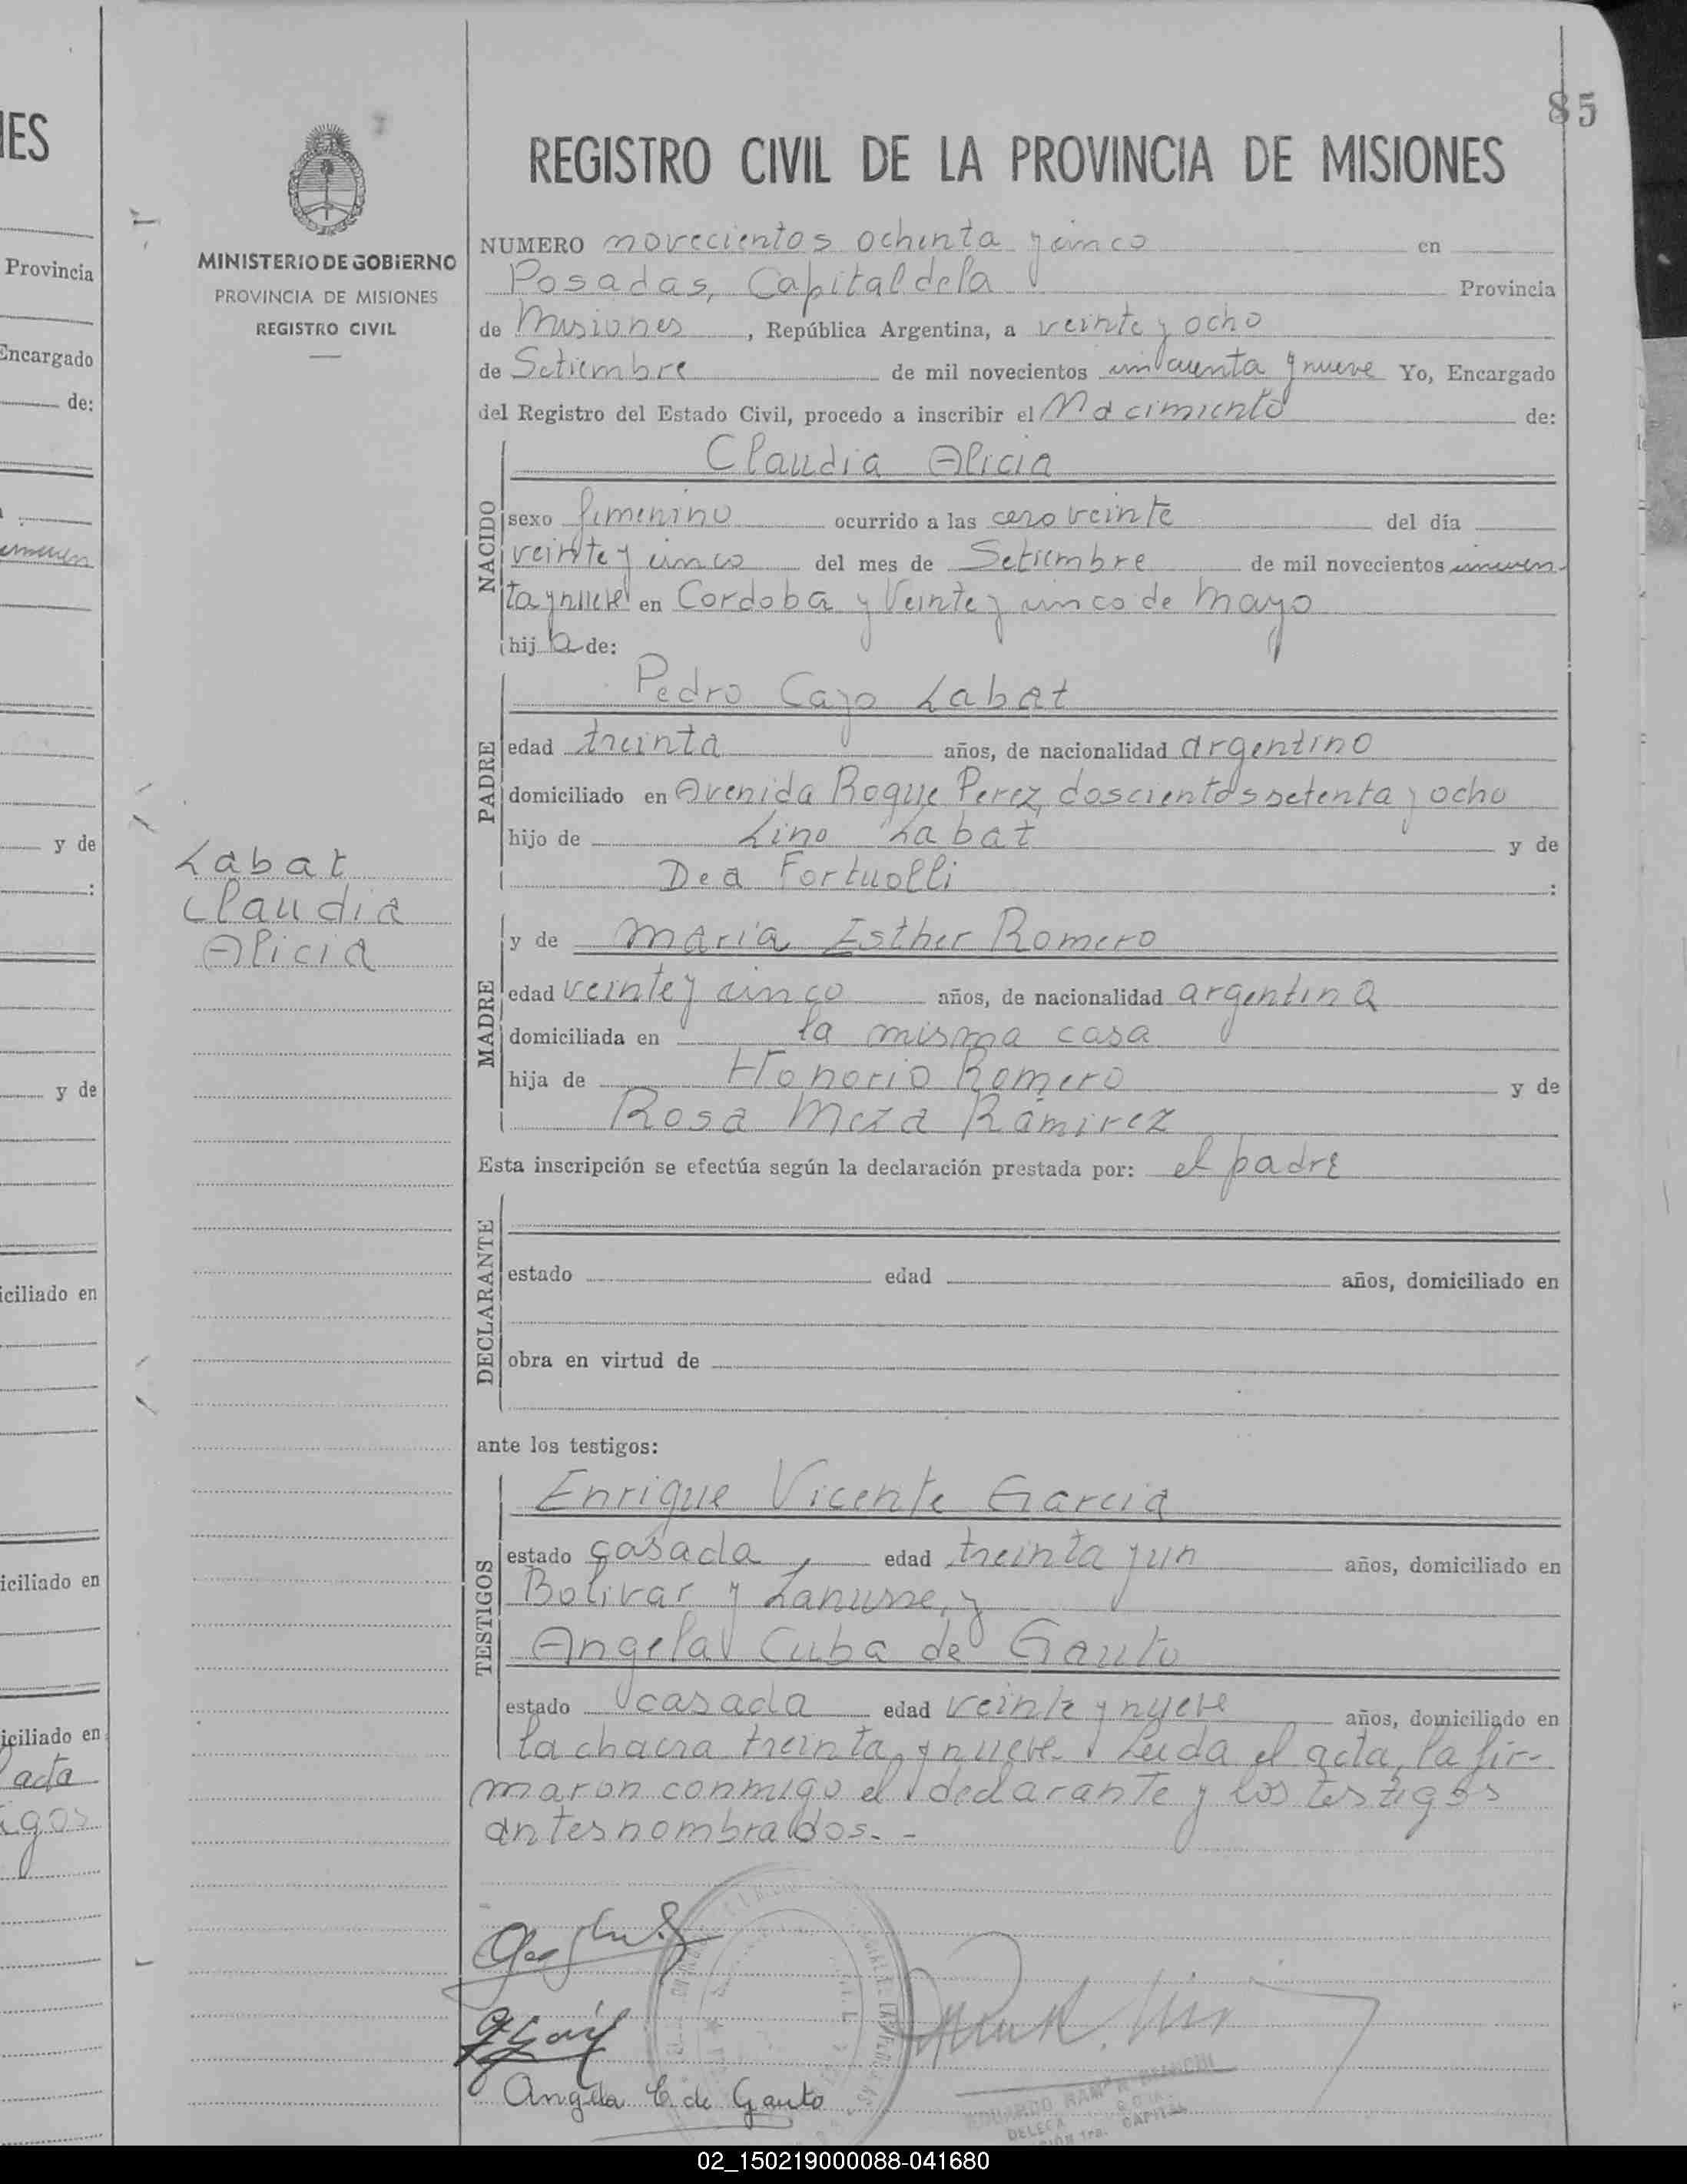 85
REGISTRO CIVIL DE LA PROVINCIA DE MISIONES
MINISTERIO DE GOBIERNO
PROVINCIA DE MISIONES
REGISTRO CIVIL
NUMERO novecientos ochenta y cinco en
Posadas, Capital de la Provincia
de Misiones, República Argentina, a veinte y ocho
de Setiembre de mil novecientos cincuenta y nueve Yo, Encargado
del Registro del Estado Civil, procedo a inscribir el Nacimiento de:
NACIDO
Claudia Alicia
sexo femenino ocurrido a las cero veinte del día
veinte y cinco del mes de Setiembre de mil novecientos cincuen-
ta y nueve en Cordoba y Veinte y cinco de Mayo
hija de:
PADRE
Pedro Cayo Labat
edad treinta años, de nacionalidad argentino
domiciliado en Avenida Roque Perez, doscientos setenta y ocho
hijo de Lino Labat y de
Dea Fortuolli :
Labat
Claudia
Alicia
MADRE
y de María Esther Romero
edad veinte y cinco años, de nacionalidad argentina
domiciliada en la misma casa
hija de Honorio Romero y de
Rosa Meza Ramirez
Esta inscripción se efectúa según la declaración prestada por: el padre
DECLARANTE
estado edad años, domiciliado en
obra en virtud de
ante los testigos:
TESTIGOS
Enrique Vicente Garcia
estado casada, edad treinta y un años, domiciliado en
Bolivar y Lanusse, y
Angela Cuba de Gauto
estado casada edad veinte y nueve años, domiciliado en
la chacra treinta y nueve. Leida el acta, la fir-
maron conmigo el declarante y los testigos
antes nombrados.-
Angela C. de Gauto
CAPITAL
ES
Provincia
Encargado
de:
y de
:
y de
iciliado en
iciliado en
iciliado en
acta
igos
02_150219000088-041680